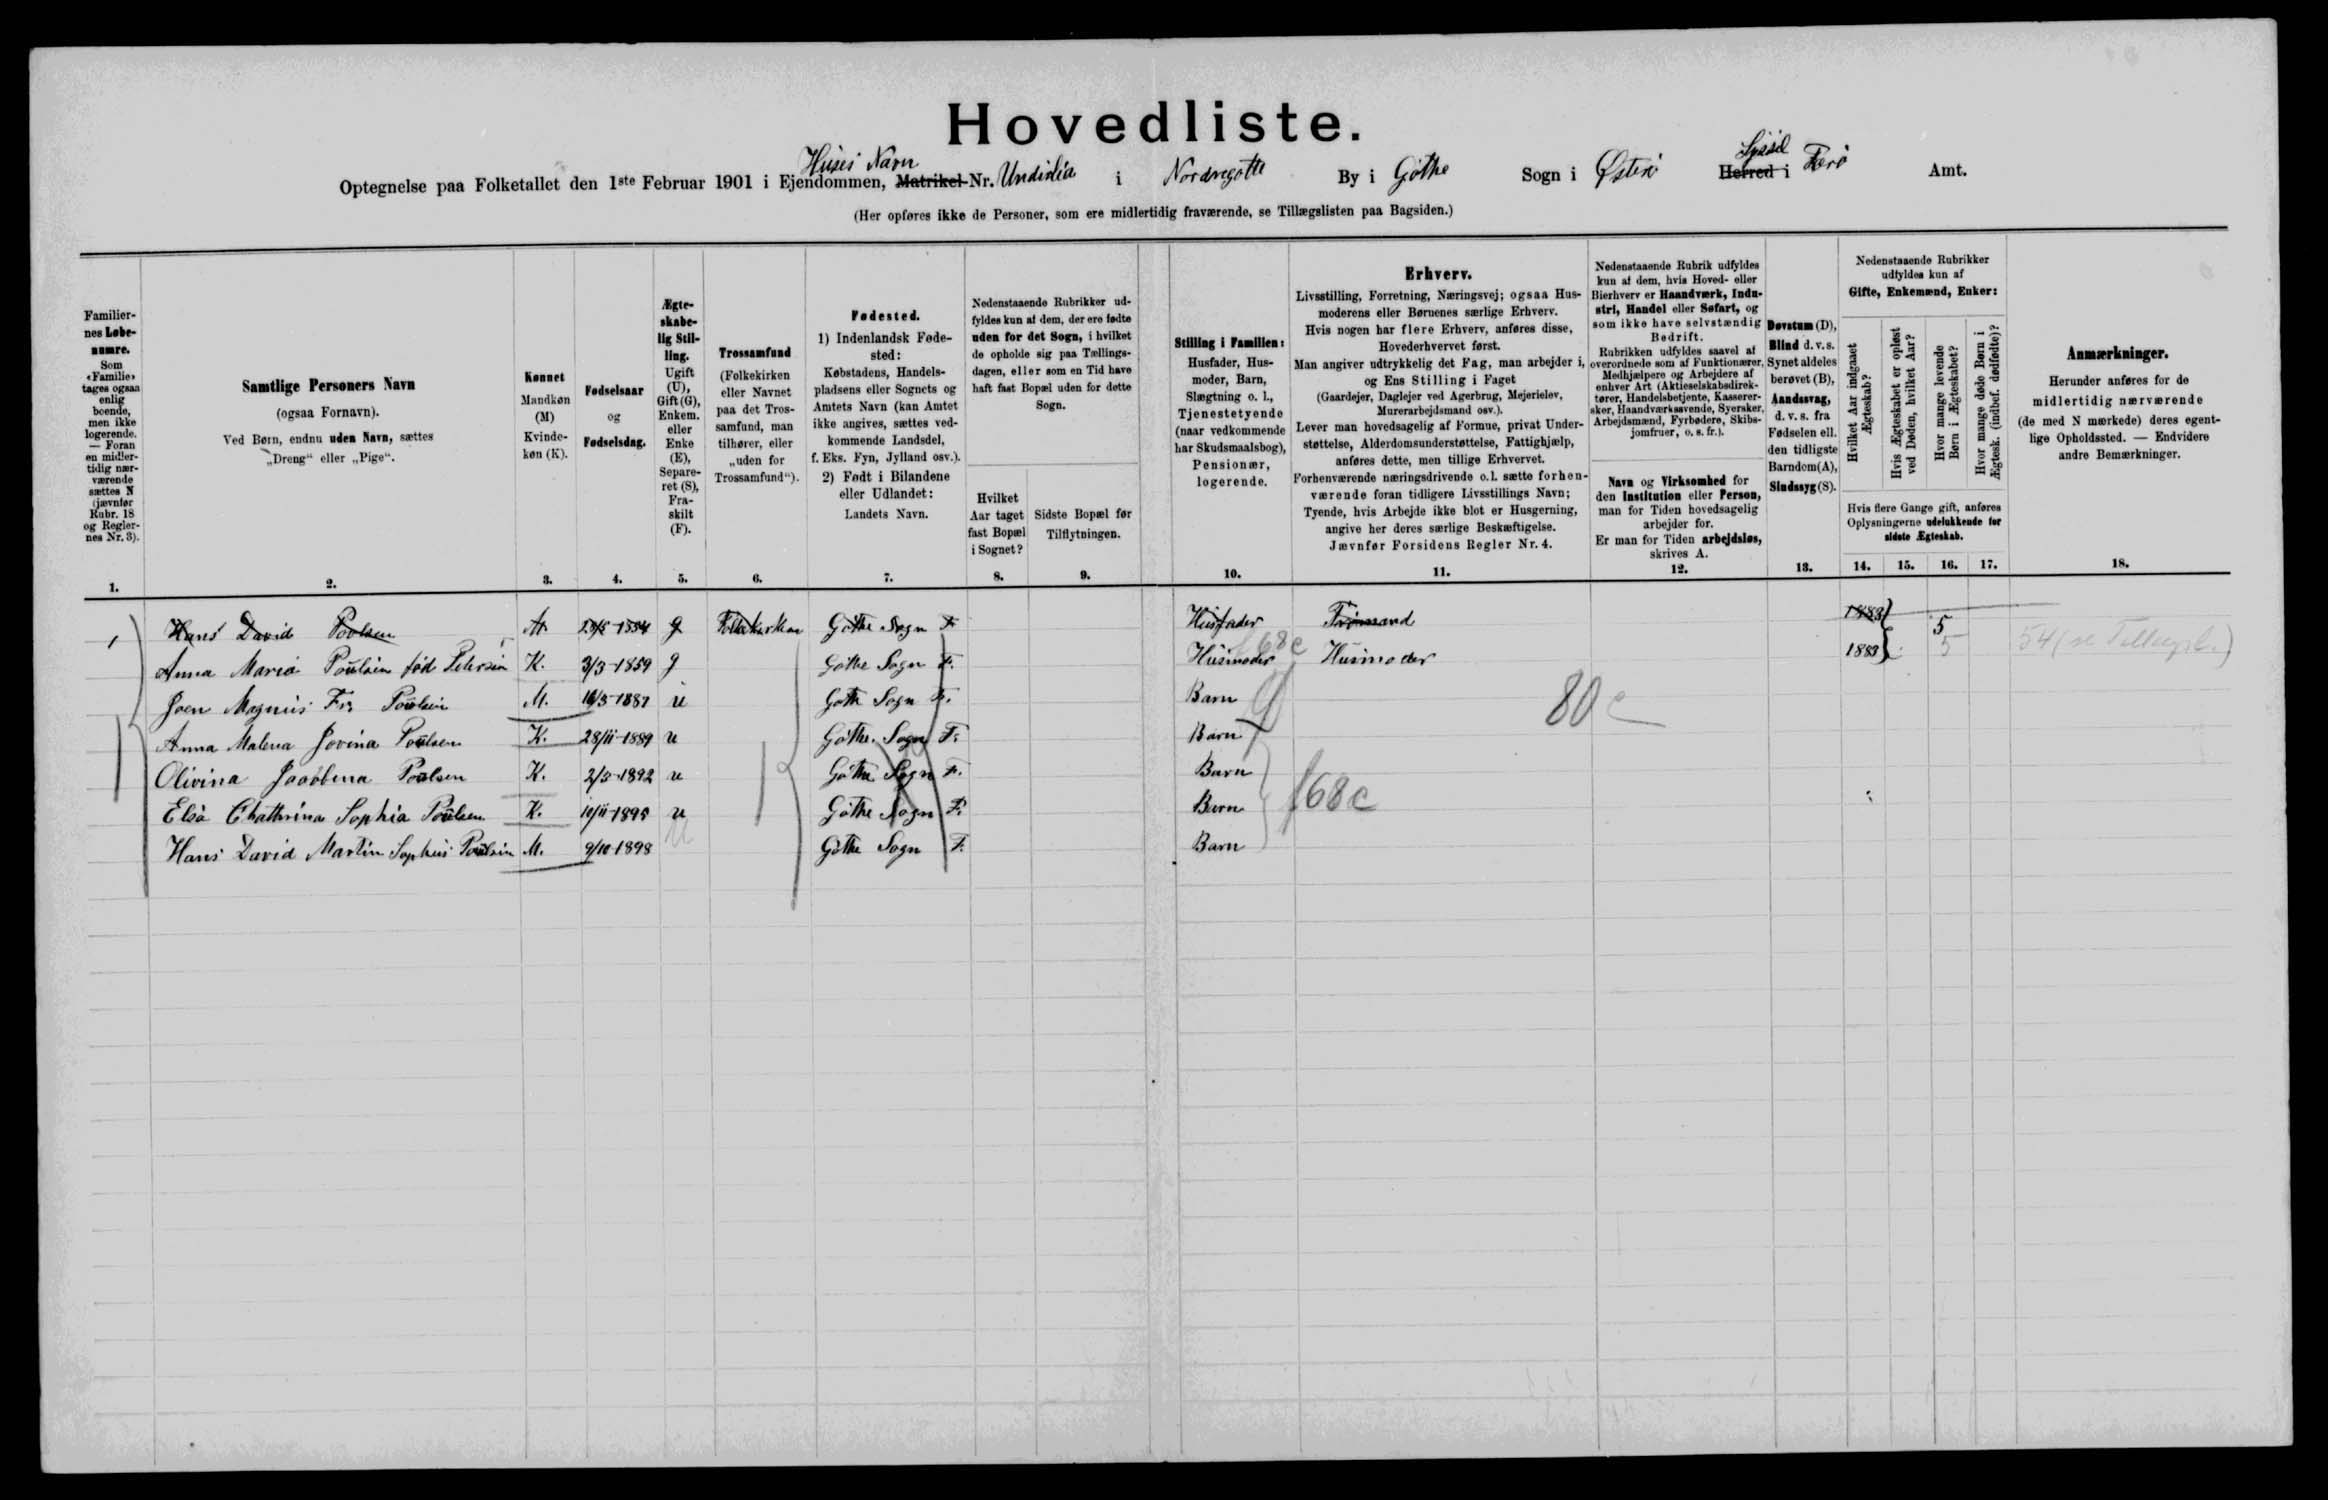 Hovedliste.
Huses Navn
Syssel
Optegnelse paa Folketallet den 1ste Februar 1901 i Ejendommen, Matrikel-Nr. Undirlia i Nordregøtte By i Gøthe Sogn i Østerø Herred i Færø Amt.
(Her opføres ikke de Personer, som ere midlertidig fraværende, se Tillægslisten paa Bagsiden.)
Familier-
nes Løbe-
numre.
Som
«Familie»
tages ogsaa
enlig
boende,
men ikke
logerende.
— Foran
en midler-
tidig nær-
værende
sættes N
(jævnfør
Rubr. 18
og Regler-
nes Nr. 3).
1.
Samtlige Personers Navn
(ogsaa Fornavn).
Ved Børn, endnu uden Navn, sættes
„Dreng“ eller „Pige“.
2.
Kønnet
Mandkøn
(M)
Kvinde-
køn (K).
3.
Fødselsaar
og
Fødselsdag.
4.
Ægte-
skabe-
lig Stil-
ling.
Ugift
(U),
Gift (G),
Enkem.
eller
Enke
(E),
Separe-
ret (S),
Fra-
skilt
(F).
5.
Trossamfund
(Folkekirken
eller Navnet
paa det Tros-
samfund, man
tilhører, eller
„uden for
Trossamfund“).
6.
Fødested.
1) Indenlandsk Føde-
sted:
Købstadens, Handels-
pladsens eller Sognets og
Amtets Navn (kan Amtet
ikke angives, sættes ved-
kommende Landsdel,
f. Eks. Fyn, Jylland osv.).
2) Født i Bilandene
eller Udlandet:
Landets Navn.
7.
Nedenstaaende Rubrikker ud-
fyldes kun af dem, der ere fødte
uden for det Sogn, i hvilket
de opholde sig paa Tællings-
dagen, eller som en Tid have
haft fast Bopæl uden for dette
Sogn.
Hvilket
Aar taget
fast Bopæl
i Sognet?
8.
Sidste Bopæl før
Tilflytningen.
9.
Stilling i Familien:
Husfader, Hus-
moder, Barn,
Slægtning o. l.,
Tjenestetyende
(naar vedkommende
har Skudsmaalsbog),
Pensionær,
logerende.
10.
Erhverv.
Livsstilling, Forretning, Næringsvej; ogsaa Hus-
moderens eller Børnenes særlige Erhverv.
Hvis nogen har flere Erhverv, anføres disse,
Hovederhvervet først.
Man angiver udtrykkelig det Fag, man arbejder i,
og Ens Stilling i Faget
(Gaardejer, Daglejer ved Agerbrug, Mejerielev,
Murerarbejdsmand osv.).
Lever man hovedsagelig af Formue, privat Under-
støttelse, Alderdomsunderstøttelse, Fattighjælp,
anføres dette, men tillige Erhvervet.
Forhenværende næringsdrivende o.l. sætte forhen-
værende foran tidligere Livsstillings Navn;
Tyende, hvis Arbejde ikke blot er Husgerning,
angive her deres særlige Beskæftigelse.
Jævnfør Forsidens Regler Nr. 4.
11.
Nedenstaaende Rubrik udfyldes
kun af dem, hvis Hoved- eller
Bierhverv er Haandværk, Indu-
stri, Handel eller Søfart, og
som ikke have selvstændig
Bedrift.
Rubrikken udfyldes saavel af
overordnede som af Funktionærer,
Medhjælpere og Arbejdere af
enhver Art (Aktieselskabsdirek-
tører, Handelsbetjente, Kasserer-
sker, Haandværkssvende, Syersker,
Arbejdsmænd, Fyrbødere, Skibs-
jomfruer, o. s. fr.).
Navn og Virksomhed for
den Institution eller Person,
man for Tiden hovedsagelig
arbejder for.
Er man for Tiden arbejdsløs,
skrives A.
12.
Døvstum (D),
Blind d. v. s.
Synet aldeles
berøvet (B),
Aandssvag,
d. v. s. fra
Fødselen ell.
den tidligste
Barndom (A),
Sindssyg (S).
13.
Nedenstaaende Rubrikker
udfyldes kun af
Gifte, Enkemænd, Enker:
Hvilket Aar indgaaet
Ægteskab?
Hvis Ægteskabet er opløst
ved Døden, hvilket Aar?
Hvor mange levende
Børn i Ægteskabet?
Hvor mange døde Børn i
Ægtesk. (indbef. dødfødte)?
Hvis flere Gange gift, anføres
Oplysningerne udelukkende for
sidste Ægteskab.
14. 15. 16. 17.
Anmærkninger.
Herunder anføres for de
midlertidig nærværende
(de med N mærkede) deres egent-
lige Opholdssted. — Endvidere
andre Bemærkninger.
18.
1 Hans David Poulsen M. 1854 g Folkekirken Gøthe Sogn F. Husfader 1883 5
Anna Maria Poulsen fød Petersen K. 3/3-1859 g Gøthe Sogn F. Husmoder 68c Husmoder 1883 5 54 (se Tillægsl.)
Joen Magnus Fr. Poulsen M. 16/3-1887 u Gøthe Sogn F. Barn 80c
Anna Malena Jovina Poulsen K. 28/11-1889 u Gøthe Sogn F. Barn
Olivina Jacobina Poulsen K. 2/3-1892 u Gøthe Sogn F. Barn
Elsa Chathrina Sophia Poulsen K. 10/11-1895 u Gøthe Sogn F. Barn 68c
Hans David Martin Sophus Poulsen M. 9/10-1898 U Gøthe Sogn F. Barn